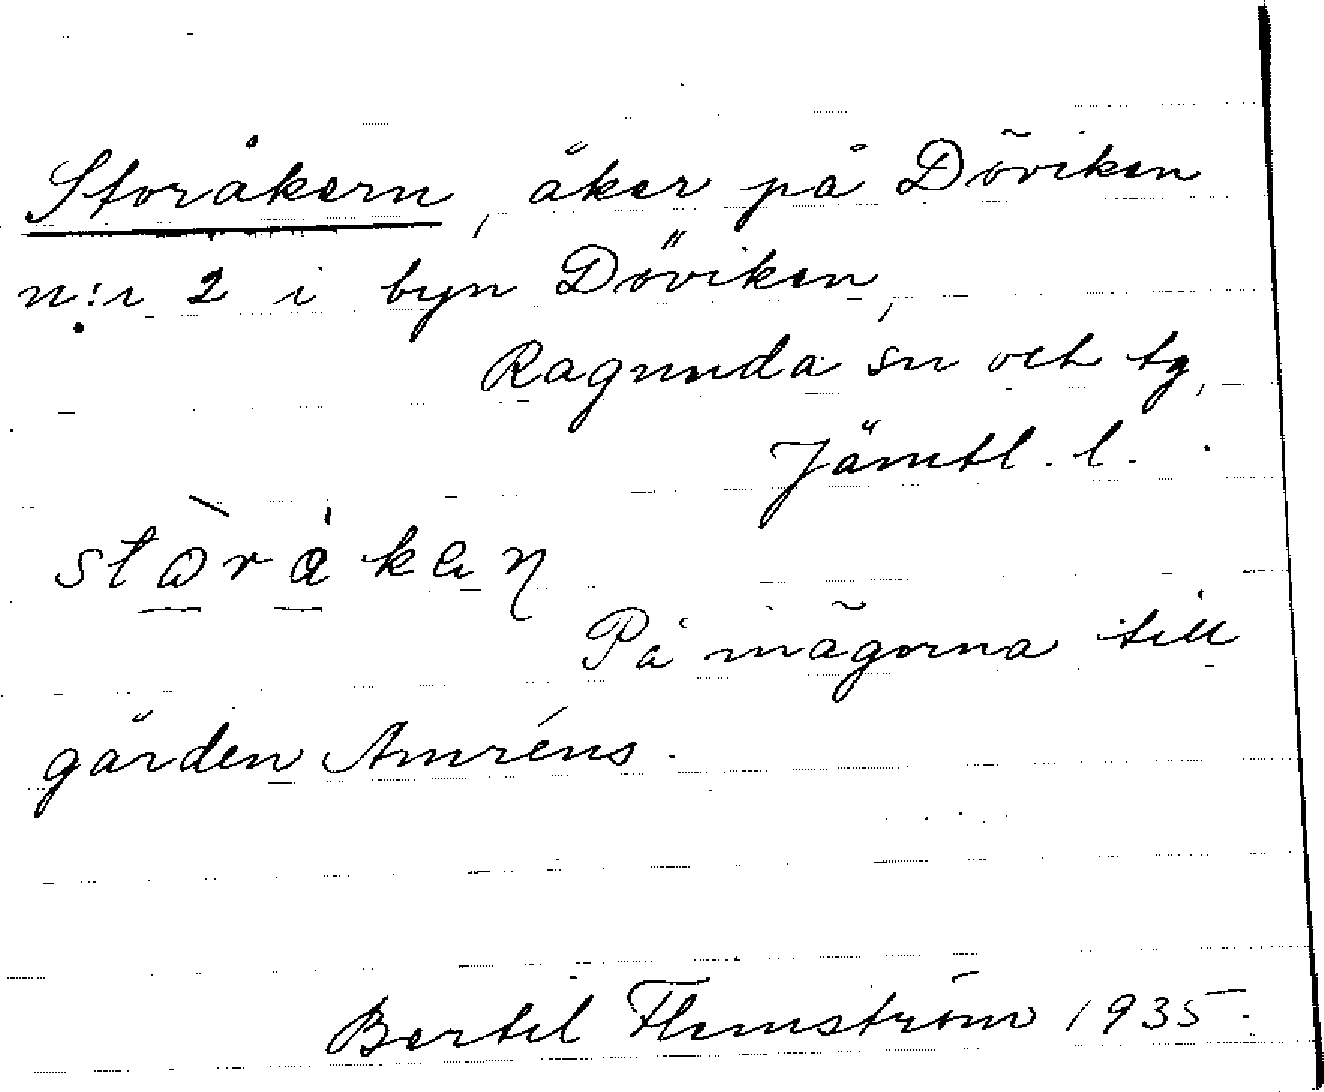 Storåkern, åker på Döviken
n:r 2 i byn Döviken,
Ragunda sn och tg,
Jämtl. l.
På inägorna till
gården Amréns.
Bertil Flemström 1935.